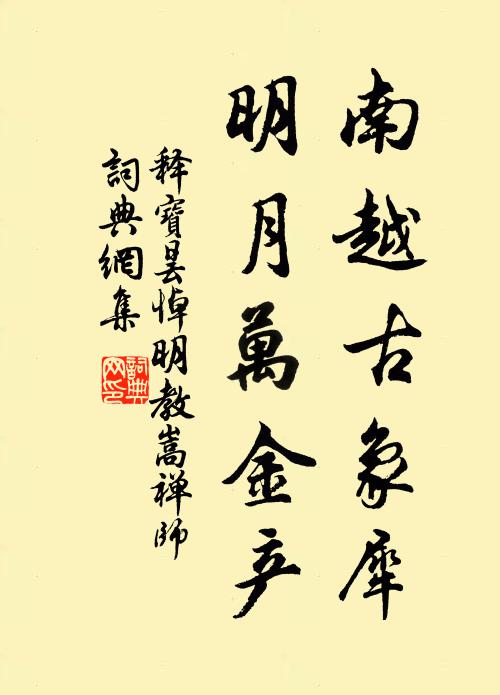 南越古象犀
明月萬金产
释寶昙悼明教嵩禅師
詞典網集
詞典
网印